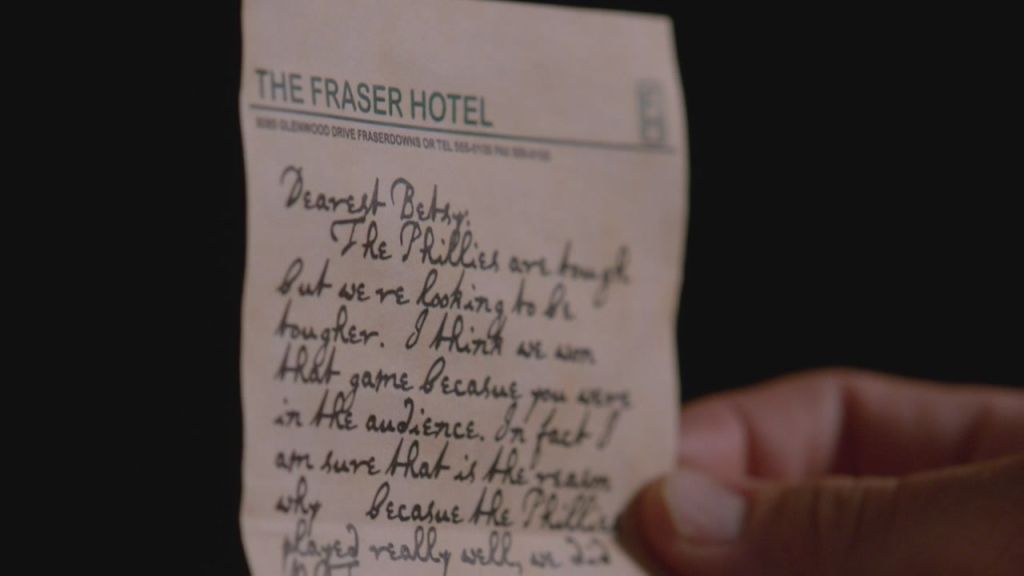 THE FRASER HOTEL
GLENWOOD DRIVE FRASERDOWNS OR TEL 555-0100 FAX
Dearest Betsy.
The Phillies are tough
but we're looking to be
tougher. I think we won
that game becasue you were
in the audience. In fact I
am sure that is the reason
why becasue the Phillies
played really well, we did